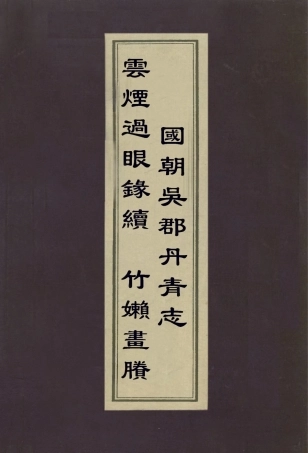 國朝吳郡丹青志
雲煙過眼錄續 竹嬾畫賸